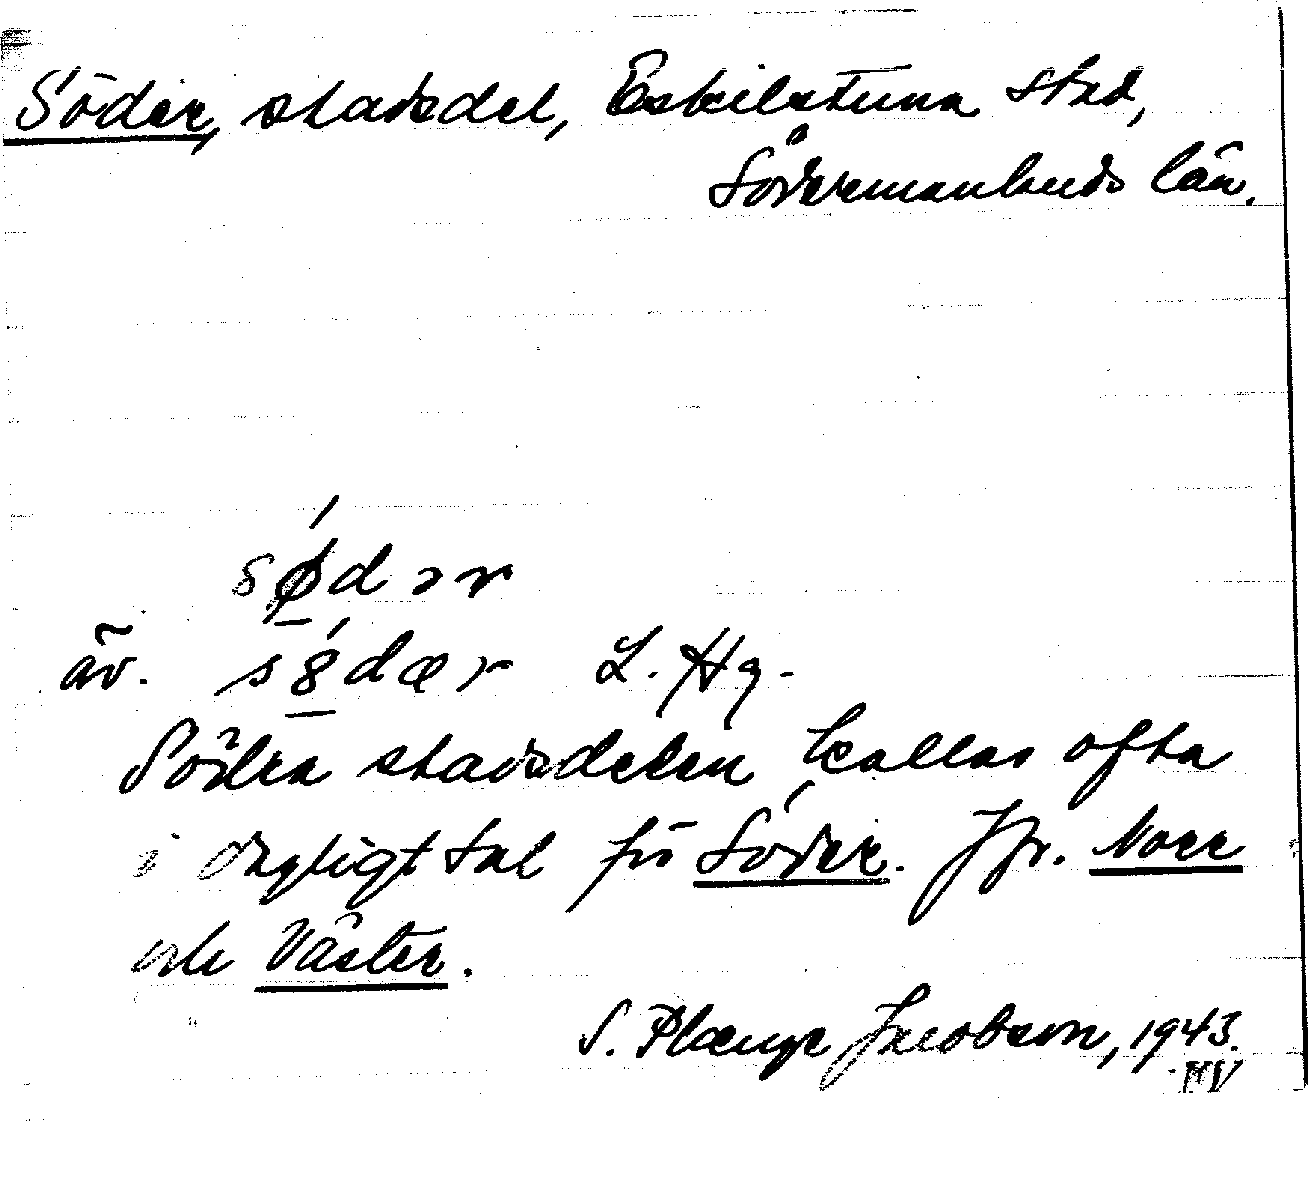 Söder, stadsdel, Eskilstuna stad,
Södermanlands län.
sǿ̱dər
äv. sö̱́dær L. Hg.
Södra stadsdelen kallas ofta
i dagligt tal för Söder. Jfr. Norr
och Väster.
S. Plænge Jacobson, 1943.